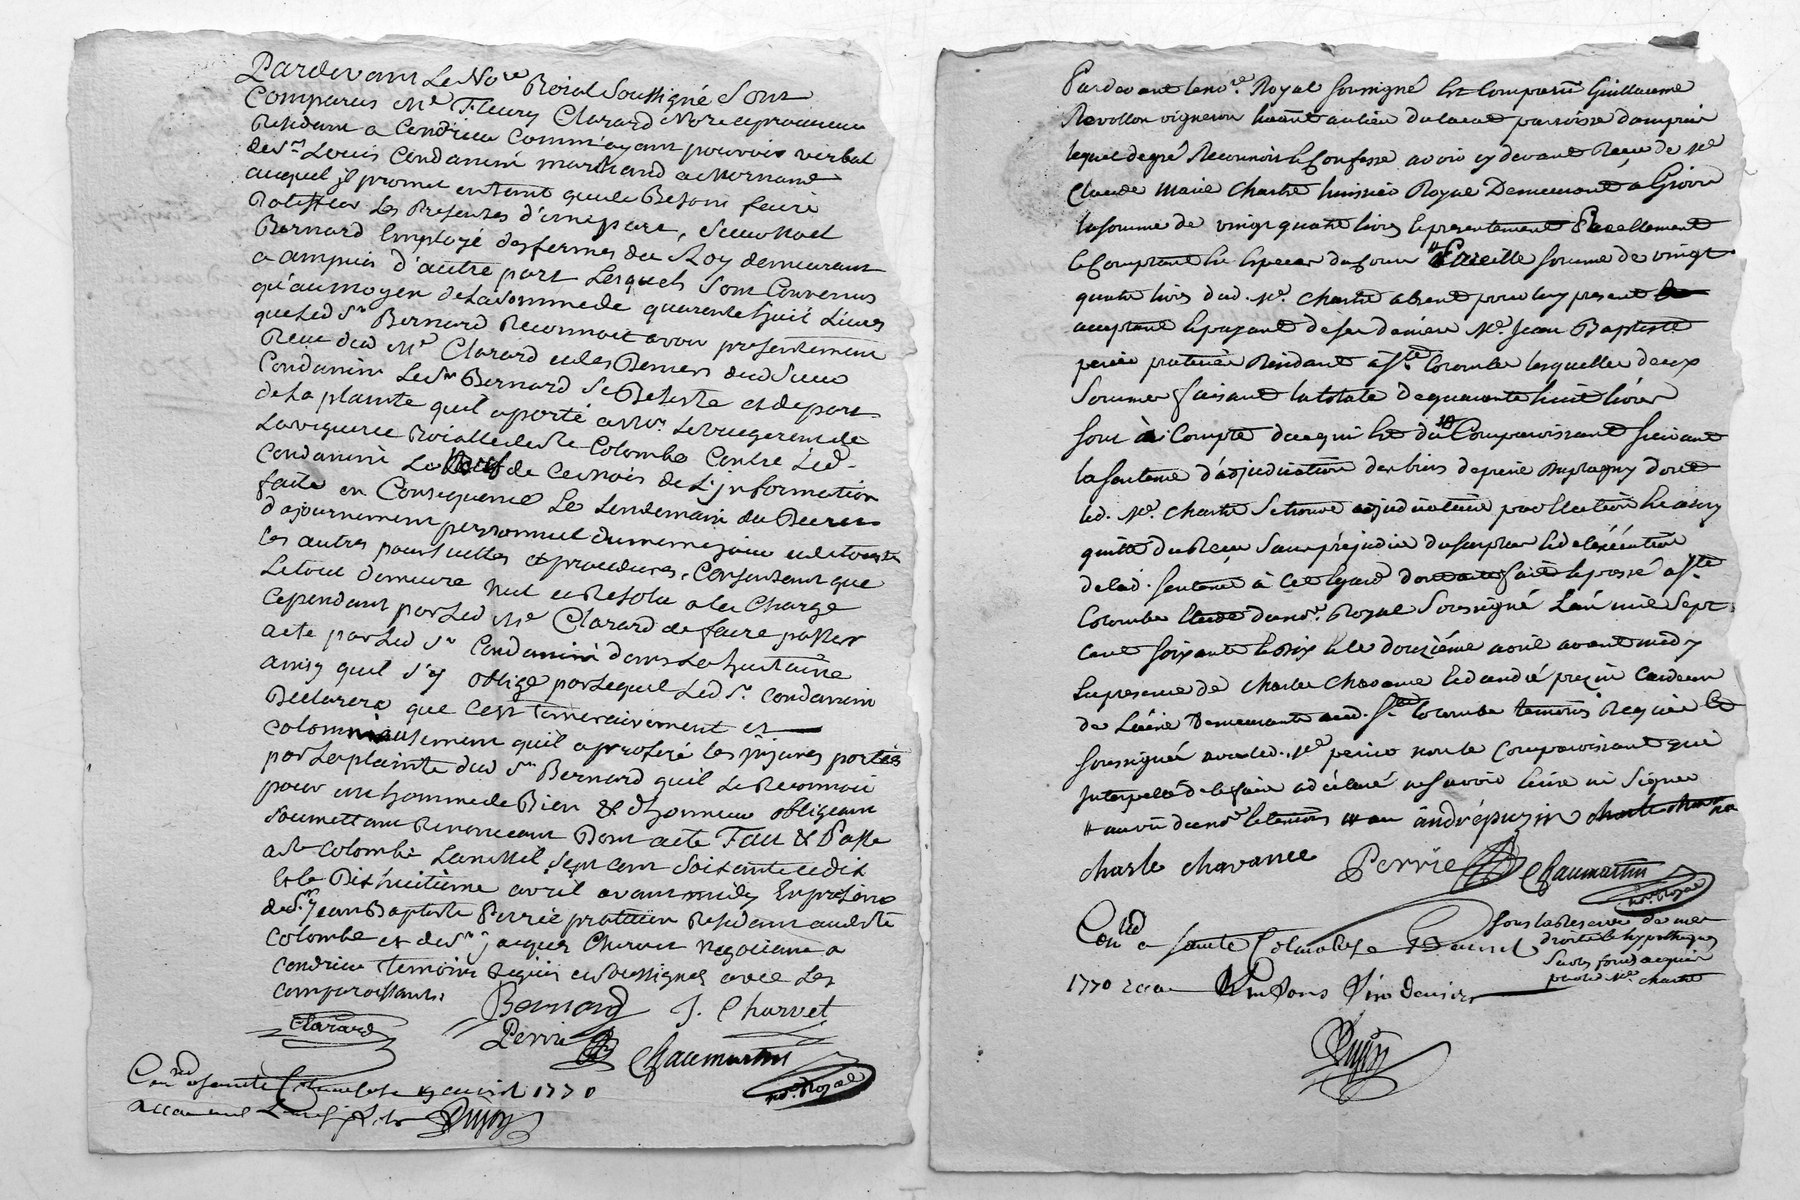 Pardevant Le No.re Roial Soussigné Sont
Comparus Me Fleury Clarard No.re et procureur
Residant a Condrieu Comme ayant pouvoir verbal
de Sr Louis Condamin marchand a Mornand
auquel jl promet en tant que de Besoin faire
Ratiffier Les Presentes d'une part, Sieur Noel
Bernard Employé des fermes du Roy demeurant
a ampuis d'autre part Lesquels Sont Convenus
qu'au moyen de La Somme de quarente huit Livres
que Led Sr Bernard Reconnoit avoir presentement
Receu dud Me Clarard et des Deniers dud Sieur
Condamin Le Sr Bernard Se Desiste et depart
de La plainte quil a porté a Mr.
La viguerie Roialle de Ste Colombe Contre Led.
Condamin Le neuf de Ce mois de L'jnformation
faite en Consequence Le Lendemain du Decret
d'ajournement personnel du meme jour et de toutes
les autres poursuittes et procedures, Consentant que
Le tout demeure Nul et Resolu a La Charge
Cependant par Led Me Clarard de faire passer
acte par Led Sr Condamin dans La huitaine
ainsy quil s'y oblige par Lequel Led Sr. Condamin
Declarera que C'est temerairement et
colomnieusement quil a proferé les jnjures portées
par La plainte dud Sr Bernard quil Le Reconnoit
pour un homme de Bien & d'honneur obligeant
Soumettant Renonceant Dont acte Fait & Passé
a Ste Colombe L'an Mil Sept Cent Soixante et dix
Et Le Dixhuitième avril avant midy En presence
de Sr. jean Baptiste Perrié praticien Residant aud Ste
Colombe et de Sr jacques Charvet Negotiant a
Condrieu temoins Requis et Soussignés avec Les
Comparoissants.
Bernard J. Charvet
Clarard
Perrié
Chaumartin
no.re Royal
Con.lé a Sainte Colombe le 19 avril 1770
Dujoy
Pardevant le no.re Royal soussigné Est Comparu Guillaume
Revollon vigneron habitant au lieu de paroisse dampuis
lequel de gré Reconnoit & Confesse avoir cy devant Receu de Me
Claude Marie Chartre huissier Royal Demeurant a Givors
la somme de vingt quatre livres & presentement Reellement
& Comptant En Especes du Cours " Pareille somme de vingt
quatre livres dud. Me. Chartre absent pour luy present
acceptant & payant de ses deniers Me. Jean Baptiste
perrié praticien Residant a Ste Colombe lesquelles deux
Sommes faisant la totale de quarante huit livres
sont à Compte de ce qui Est du au Comparoissant suivant
la sentence d'adjudication des biens de pierre dont
led. Me. Chartre se trouve adjudicataire
quitte du Receu sans préjudice du surplus & de l'exécution
de lad. sentence à Cet Egard dont acte fait & passé a Ste
Colombe Etude du no.re Royal Soussigné L'an mil Sept
cent soixante & dix & le douzième avril avant midy
En presence de Charles Chavance Et d'andré puzin
de Demeurants aud. Ste Colombe temoins Requis &
soussignés avec led. Me perrié non le Comparoissant qui
Interpellé de le faire a déclaré ne savoir Ecrire ni Signer
" au vu du no.re & temoins andré puzin
charle chavance Perrié Chaumartin
no.re Royal
Con.lé a Sainte Colombe le avril
1770 recu
sous la Reserve de mes
droits & hypotheques
sur les fonds acquis
par led Me. Chartre
Dujoy